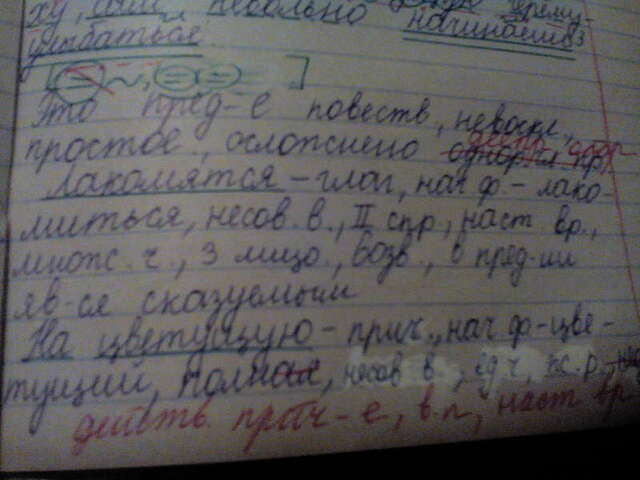 ху, сам невольно начинаешь 3
улыбаться
Это пред-е повеств, невоскл,
простое, осложнено однор. чл. пр,
Лакомятся - глаг, нач ф - лако-
миться, несов. в., II спр, наст вр.,
множ. ч., 3 лицо., возв., в пред-ии
яв-ся сказуемым
На цветущую - прич., нач ф - цве-
тущий, полное, несов в., ед ч, ж. р.,
действ. прич-е, в. п, наст вр